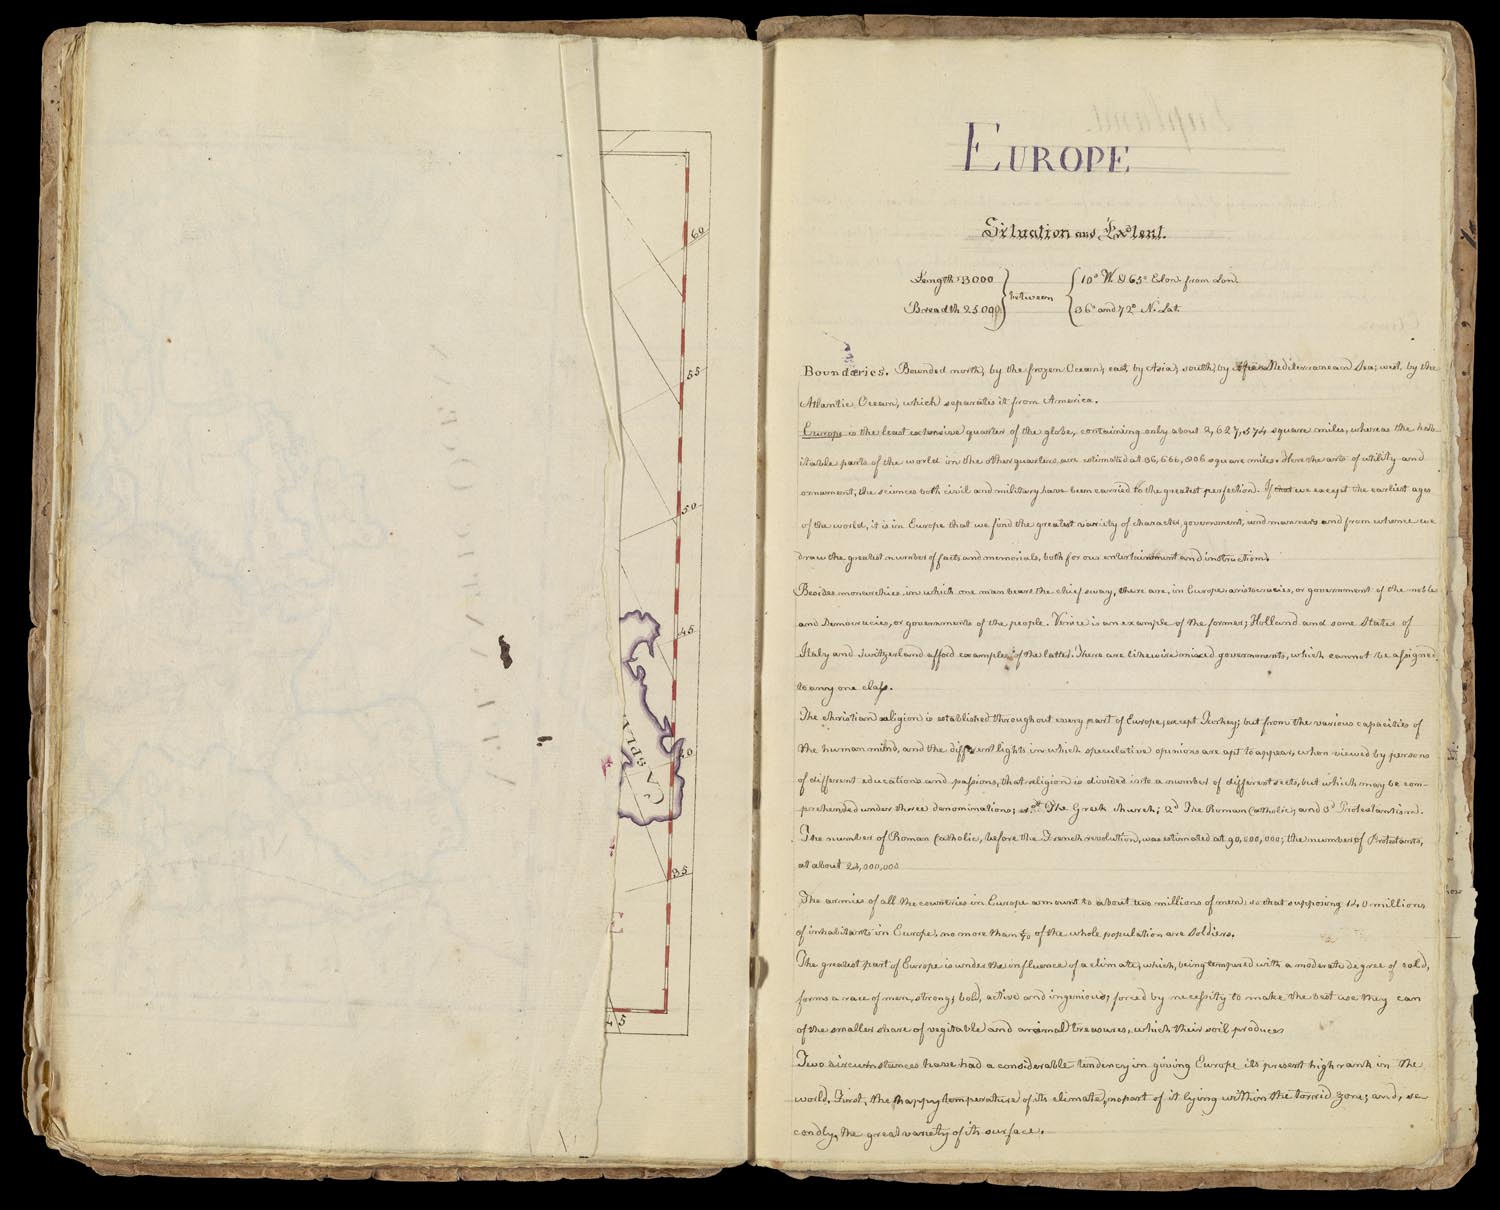 60
55
50
45
40
35
45
EUROPE
Situation and Extent.
Length 3000 } between { 10° W. & 65° E. lon. from Lon.
Breadth 2500 36° and 72° N. Lat.
Boundaries. Bounded north, by the frozen Ocean; east, by Asia; south, by the Mediterranean Sea; west, by the
Atlantic Ocean, which separates it from America.
Europe is the least extensive quarter of the globe, containing only about 2,627,574 square miles, whereas the hab-
itable parts of the world in the other quarters, are estimated at square miles. Here the arts of utility and
ornament, the sciences both civil and military have been carried to the greatest perfection. If we except the earliest ages
of the world, it is in Europe that we find the greatest variety of character, government, and manners and from whence we
draw the greatest number of facts and memorials, both for our entertainment and instruction.
Besides monarchies, in which one man bears the chief sway, there are, in Europe aristocracies, or government of the nobles
and Democracies, or governments of the people. Venice is an example of the former; Holland and some States of
Italy and Switzerland afford examples of the latter. There are likewise mixed governments, which cannot be assigned
to any one class.
The christian religion is established throughout every part of Europe, except Turkey; but from the various capacities of
the human mind, and the different lights in which speculative opinions are apt to appear, when viewed by persons
of different educations and passions, that religion is divided into a number of different sects, but which may be com-
prehended under three denominations; 1st The Greek church; 2d The Roman Catholic; and 3d Protestantism.
The number of Roman Catholic, before the French revolution, was estimated at 90,000,000; the number of Protestants,
at about 24,000,000
The armies of all the countries in Europe amount to about two millions of men; so that supposing 140 millions
of inhabitants in Europe, no more than 1/70 of the whole population are Soldiers.
The greatest part of Europe is under the influence of a climate, which, being tempered with a moderate degree of cold,
forms a race of men, strong, bold, active and ingenious; forced by necessity to make the best use they can
of the smaller share of vegitable and animal treasures, which their soil produces
Two circumstances have had a considerable tendency in giving Europe its present high rank in the
world. First, the happy temperature of its climate, no part of it lying within the torrid zone; and, se-
condly, the great variety of its surface.